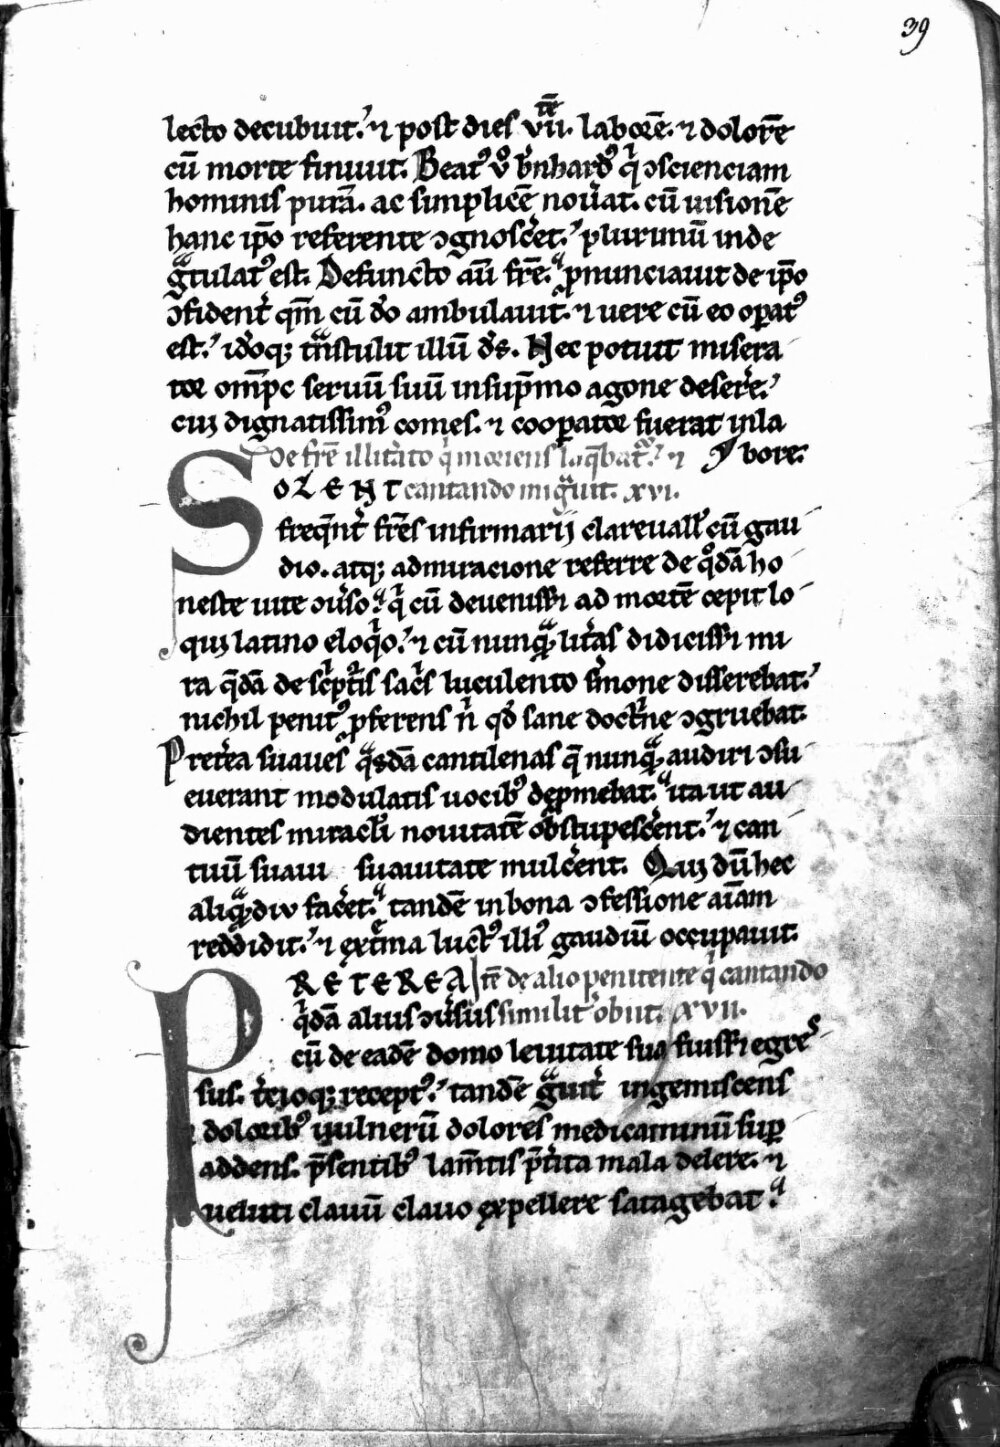 39
lecto decubuit. ⁊ post dies vii.tē laborē. ⁊ dolorē
cū morte finiuit. Beatꝰ v̊ b̄nhardꝰ qⁱ ↄscienciam
hominis purā. ac simplicē nouat. cū uisionē
hanc ip̄o referente ↄgnosc̄et. plurimū inde
gᵃtulatꝰ est. Defuncto aūt fr̄e. ꝓnunciauit de ip̄o
ↄfident̄ qm̄ cū dō ambulauit. ⁊ uere cū eo oꝑatꝰ
est. id̄oqꝫ tᵃnstulit illū d̄s. Nec potuit misera
tor om̄pc seruū suū insup̄mo agone deser̄e.
cuiꝰ dignatissimꝰ comes. ⁊ cooꝑator fuerat inla
bore.
De fr̄e illit̄ato qⁱ moriens loq̄bat᷑. ⁊
cantando migᵃuit. xvi.
SOLENT
freq̄nt̄ fr̄es infirmarij clareuall̄ cū gau
dio. atqꝫ admiracione referre de qͦdā ho
neste uite ↄūso. qⁱ cū deuenissꝫ ad mortē cepit lo
qui latino eloqͦo. ⁊ cū nunqᵃꝫ lit̄as didicissꝫ mi
ra q̄dā de sc̄pt̄is sac̄s luculento s̄mone disserebat.
nichil penitꝰ ꝓferens n̄ qd̄ sane doct̄ne ↄgruebat.
Pret̄ea suaues qᵃsdā cantilenas q̄ nunqᵃꝫ audiri ↄsu
euerant modulatis uocibꝰ dep̄mebat. ita ut au
dientes miracl̄i nouitatē obstupesc̄ent. ⁊ can
tuū suaui suauitate mulc̄ent. Qui dū hec
aliqᵃꝫdiu fac̄et. tandē inbona ↄfessione aīam
reddidit. ⁊ ext̄ma luctꝰ illiꝰ gaudiū occupauit.
PRETEREA
Itē de alio penitente qⁱ cantando
qⁱdā alius ↄūsus similit̄ obiit. xvii.
cū de eadē domo leuitate sua fuissꝫ egres
sus. t̄cioqꝫ receptꝰ. tandē gᵃuit̄ ingemiscens
doloribꝰ uulnerū dolores medicaminū suꝑ
addens. p̄sentibꝰ lam̄tis p̄t̄ita mala delere. ⁊
ueluti clauū clauo expellere satagebat.